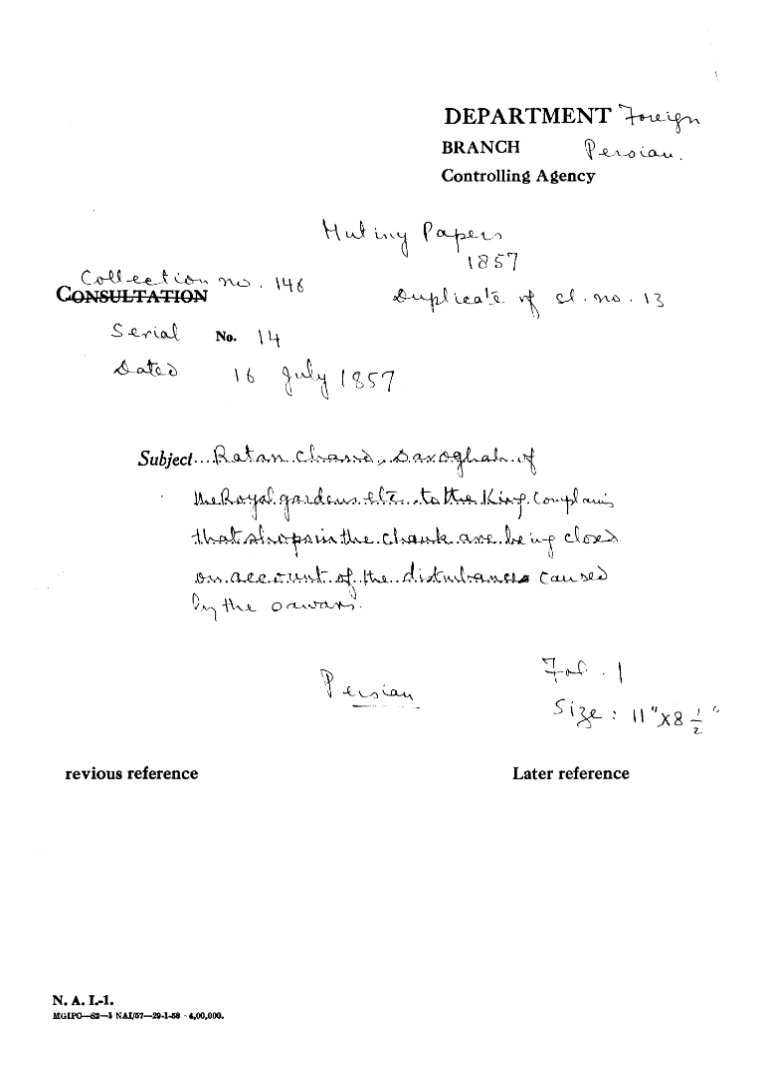 DEPARTMENT Foreign
BRANCH Persian.
Controlling Agency
Mutiny Papers
1857
Collection no. 146
CONSULTATION
Duplicate of sl. no. 13
Serial No. 14
Dated 16 July 1857
Subject... Ratan Chand, Daroghah of
the Royal gardens etc. to the King. Complains
that shops in the Chauk are being closed
on account of the disturbances caused
by the sawars.
Persian
Fol. 1
Size: 11"x8 1/2"
revious reference
Later reference
N. A. I.-1.
MGIPC—S2—3 NAI/57—29-1-58 - 4,00,000.